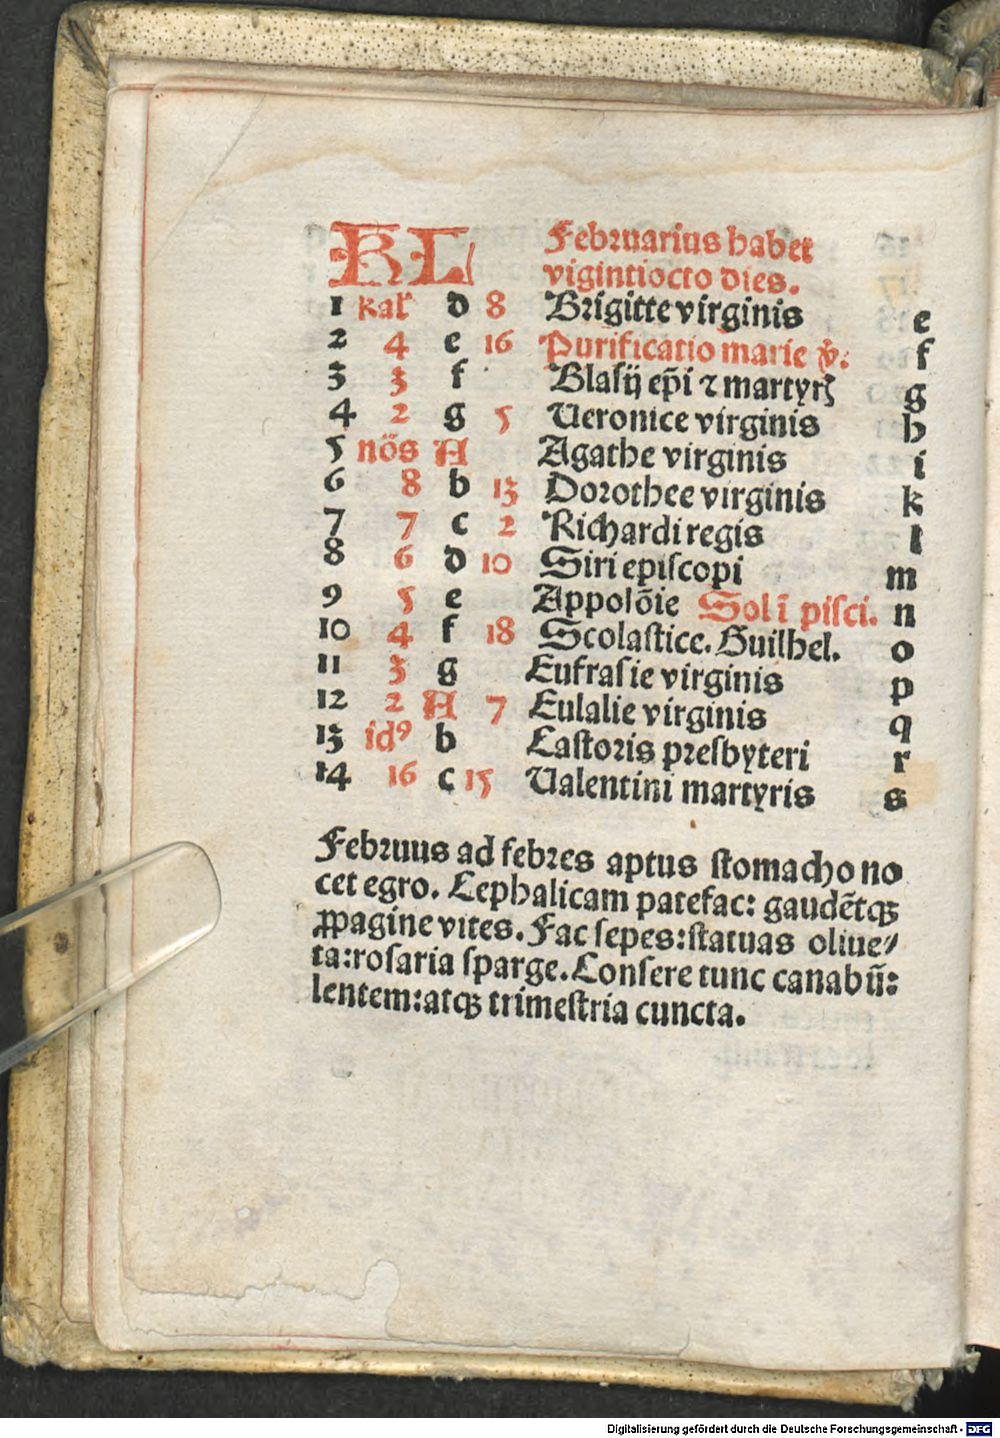 KL Februarius habet
vigintiocto dies.
1 kal̄ d 8 Brigitte virginis e
2 4 e 16 Purificatio marie v̄. f
3 3 f Blasij ep̄i ⁊ martyrꝭ g
4 2 g 5 Ueronice virginis h
5 nōs A Agathe virginis i
6 8 b 13 Dorothee virginis k
7 7 c 2 Richardi regis l
8 6 d 10 Siri episcopi m
9 5 e Appolōie Sol ī pisci. n
10 4 f 18 Scolastice. Guilhel. o
11 3 g Eufrasie virginis p
12 2 A 7 Eulalie virginis q
13 idꝰ b Castoris presbyteri r
14 16 c 15 Ualentini martyris s
Februus ad febres aptus stomacho no
cet egro. Cephalicam patefac: gaudētqꝫ
ꝓpagine vites. Fac sepes: statuas oliue/
ta: rosaria sparge. Consere tunc canabū:
lentem: atqꝫ trimestria cuncta.
Digitalisierung gefördert durch die Deutsche Forschungsgemeinschaft - DFG